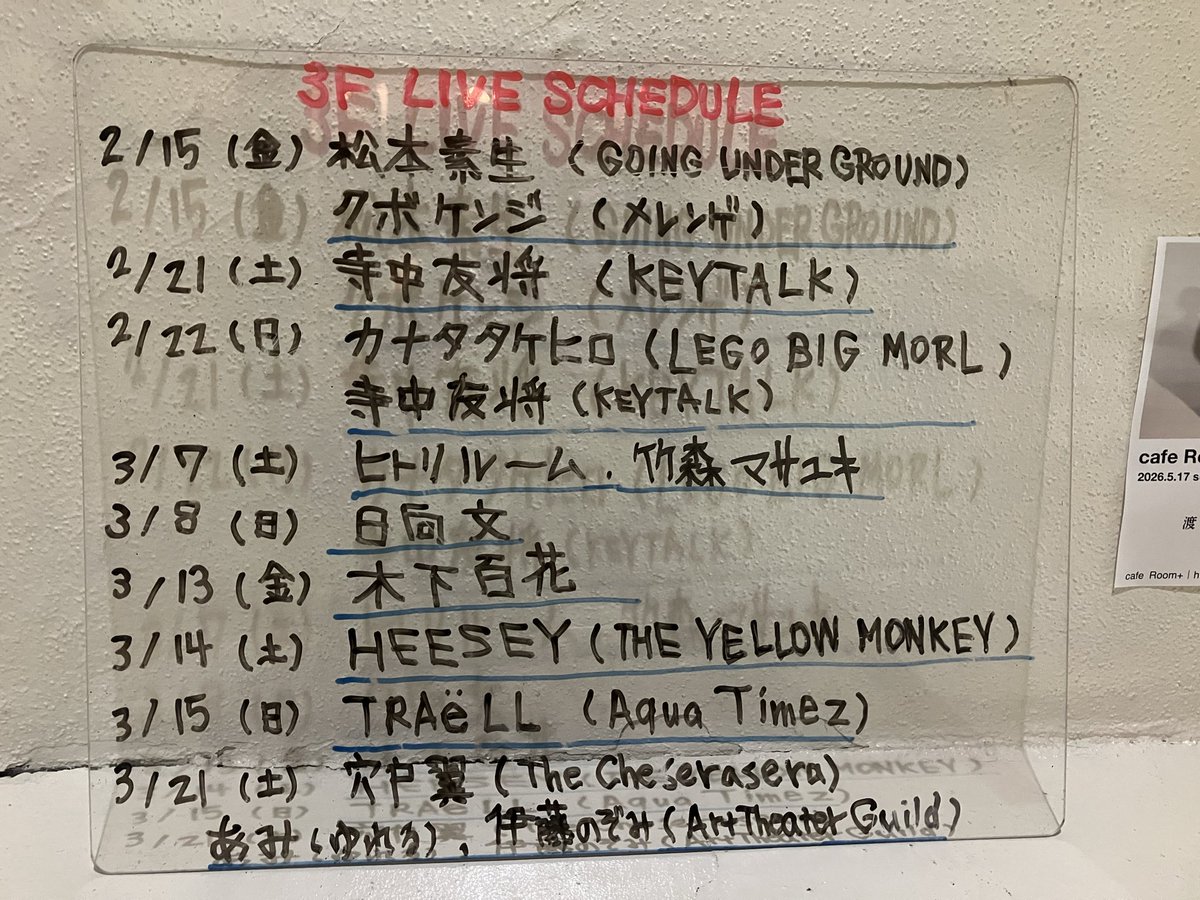 3F LIVE SCHEDULE
2/15 (金) 松本素生 (GOING UNDER GROUND)
クボケンジ (メレンゲ)
2/21 (土) 寺中友将 (KEYTALK)
2/22 (日) カナタタケヒロ (LEGO BIG MORL)
寺中友将 (KEYTALK)
3/7 (土) ヒトリルーム.竹森マサユキ
3/8 (日) 日向文
3/13 (金) 木下百花
3/14 (土) HEESEY (THE YELLOW MONKEY)
3/15 (日) TRAëLL (Aqua Timez)
3/21 (土) 穴戸翼 (The Cheserasera)
あみ(ゆれる)、伊藤のぞみ(ArtTheaterGuild)
cafe R
2026.5.17 s
渡
cafe Room+ | h